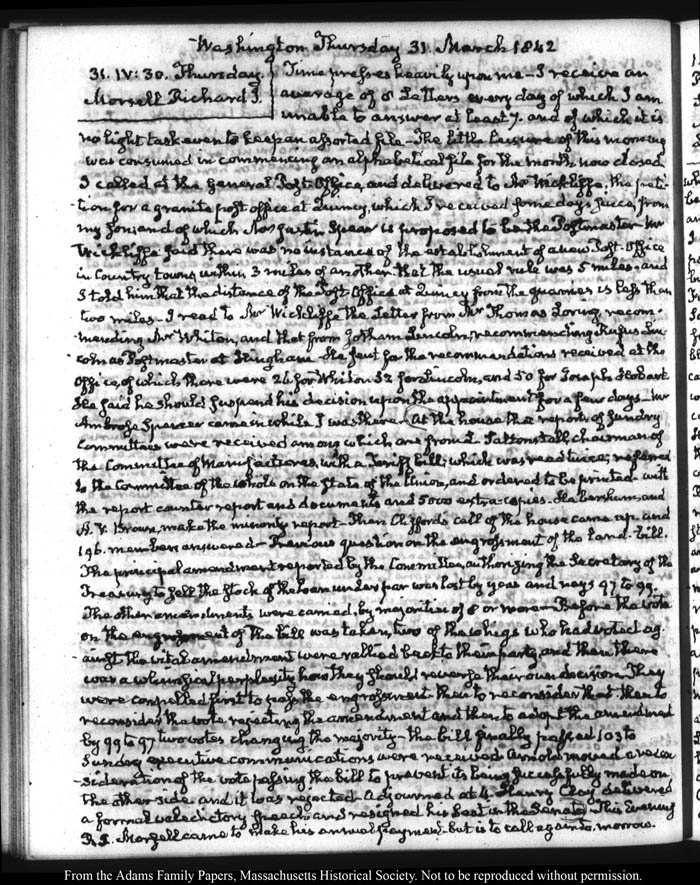 Washington Thursday 31. March 1842
31. IV: 30. Thursday.
Morsell Richard T.
Time presses heavily upon me - I receive an
average of 8 Letters every day of which I am
unable to answer at least 7. and of which it is
no light task even to keep an assorted file - The little leisure of this morning
was consumed in commencing an alphabetical file for the month now closed
I called at the General Post-Office, and delivered to Mr Wickliffe, the peti-
tion for a granite post office at Quincy, which I received some days since, from
my Son, and of which Mr Justin Spear is proposed to be the Postmaster - Mr
Wickliffe said there was no instance of the establishment of a new Post-Office
in Country towns within 3 miles of another. that the usual rule was 5 miles - and
I told him that the distance of the Post-Office at Quincy from the quarries is less than
two miles - I read to Mr Wickliffe the Letter from Mr Thomas Loring, recom-
mending Mr Whiton, and that from Gotham Lincoln, recommending Rufus Lin-
coln as Postmaster at Hingham - He sent for the recommendations received at the
Office, of which there were 26 for Whiton 52 for Lincoln, and 50 for Joseph Hobart.
He said he should suspend his decision upon the appointment for a few days - Mr
Ambrose Spencer came in while I was there - At the house the reports of sundry
Committees were received among which one from L. Saltonstall, chairman of
the Committee of Manufactures, with a Tariff bill; which was read twice, referred
to the Committee of the whole on the State of the Union, and ordered to be printed - with
the report counter report and documents and 5000 extra-copies - Habersham, and
A. V. Brown, make the minority report - Then Clifford's call of the house came up and
196. members answered - Previous question on the engrossment of the Loan-bill.
The principal amendment reported by the Committee, authorizing the Secretary of the
Treasury to sell the Stock of the loan under par was lost by yeas and nays 97 to 99.
The other amendments were carried, by majorities of 8 or more - Before the vote
on the engrossment of the bill was taken, two of the whigs who had voted ag-
ainst the vital amendment were rallied back to their party, and then there
was a whimsical perplexity how they should reverse their own decision. They
were compelled first to pass the engrossment then to reconsider that then to
reconsider the vote rejecting the amendment and then to adopt the amendment
by 99 to 97 two votes changing the majority - the bill finally passed 103 to
Sundry executive communications were received Arnold moved a recon-
sideration of the vote passing the bill to prevent its being successfully made on
the other side and it was rejected. Adjourned at 4. Henry Clay delivered
a formal valedictory speech and resigned his Seat in the Senate. This Evening
R. T. Morsell came to make his annual payment - but is to call again to-morrow.
From the Adams Family Papers, Massachusetts Historical Society. Not to be reproduced without permission.